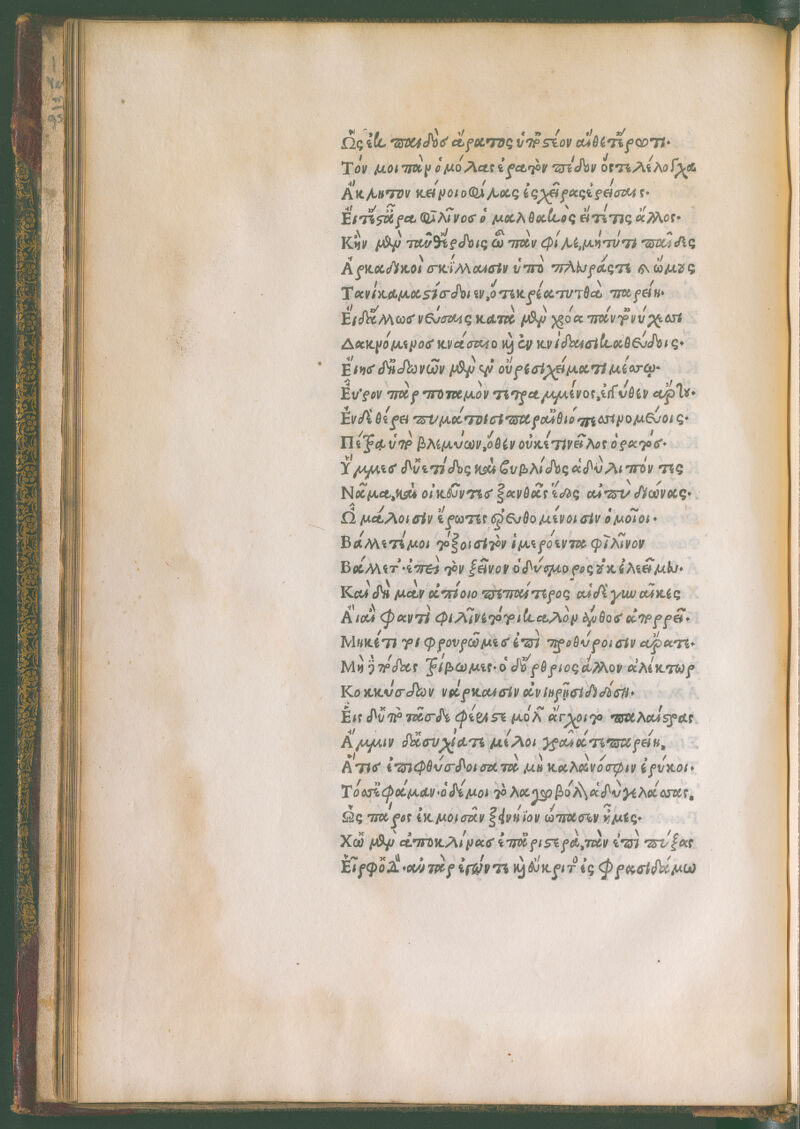 Ὣς ἐκ παιδὸς ἄρατος ὑπ' ὀστέον αἴθετ' ἔρωτι·
Τόν μοι πὰν ὁμόλας ἐρατὸν πέδον ὅστε λέλογχα
Ἄκλητον κείνοιο φίλας ἐς χεῖρας ἐρείσαις·
Εἴτ' ἔστ' ἆρα φιλῖνος ὁ μαλθακὸς εἴτε τις ἄλλος·
Κἢν μὲν ταῦθ' ἔρδοις ὦ πὰν φίλε, μήτι τὺ παῖδες
Ἀρκαδικοὶ σκίλλαισιν ὑπὸ πλευράς τε καὶ ὤμους
Τανίκα μαστίσδοιεν, ὅτε κρέα τυτθὰ παρείη·
Εἰ δ' ἄλλως νεύσαις κατὰ μὲν χρόα πάντ' ὀνύχεσσι
Δακνόμενος κνάσαιο καὶ ἐν κνίδαισι καθεύδοις·
Εἴης δ' ἠδωνῶν μὲν ἐν οὔρεσι χείματι μέσσῳ·
Εὗρον πὰρ ποταμὸν τετραμμένος, ἐγγύθεν ἄρκτου·
Ἐν δὲ θέρει πυμάτοισι παρ' αἰθιόπεσσι νομεύοις·
Πέτρᾳ ὑπ' βλεμύων, ὅθεν οὐκέτι νεῖλος ὁρατός·
Ὕμμες δ' ὑετίδος καὶ βυβλίδος ἁδὺ λιπόντες
Νᾶμα, καὶ οἰκεῦντες ξανθᾶς ἕδος αἰπὺ διώνας·
Ὦ μάλοισιν ἔρωτες ἐρευθομένοισιν ὁμοῖοι·
Βάλλετέ μοι τόξοισι τὸν ἱμερόεντα φιλῖνον
Βάλλετ'· ἐπεὶ τὸν ξεῖνον ὁ δύσμορος οὐκ ἐλεεῖ μευ·
Καὶ δὴ μὰν ἀπίοιο πεπαίτερος αἱ δὲ γυναῖκες
Αἰαῖ φαντὶ φιλῖνε τό τοι καλὸν ἄνθος ἀπορρεῖ·
Μηκέτι τοι φρουρέωμες ἐπὶ προθύροισιν ἄρατε·
Μὴ δὲ πόδας τρίβωμες· ὁ δ' ὄρθριος ἄλλον ἀλέκτωρ
Κοκκύσδων νάρκαισιν ἀνιηρῇσι διδοίη·
Εἷς δ' ὑπὸ τᾶσδε φέριστε μόλων ἄγχοιτο παλαίστρας
Ἄμμιν δ' ἁσυχία τε μέλοι γραῖά τε παρείη.
Ἅτις ἐπιφθύσδοισα τὰ μὴ καλὰ νόσφιν ἐρύκοι·
Τόσσ' ἐφάμαν· ὁ δέ μοι τὸ λαγωβόλον, ἁδὺ γελάσσας.
Ὡς πάρος ἐκ μοισᾶν ξεινήϊον ὤπασεν ἦμες·
Χὠ μὲν ἀποκλίνας ἐπ' ἀριστερά, τὰν ἐπὶ πύξας
Εἷρφ' ὁδόν· αὐτὰρ ἐγών τε καὶ εὔκριτος ἐς φρασιδάμω